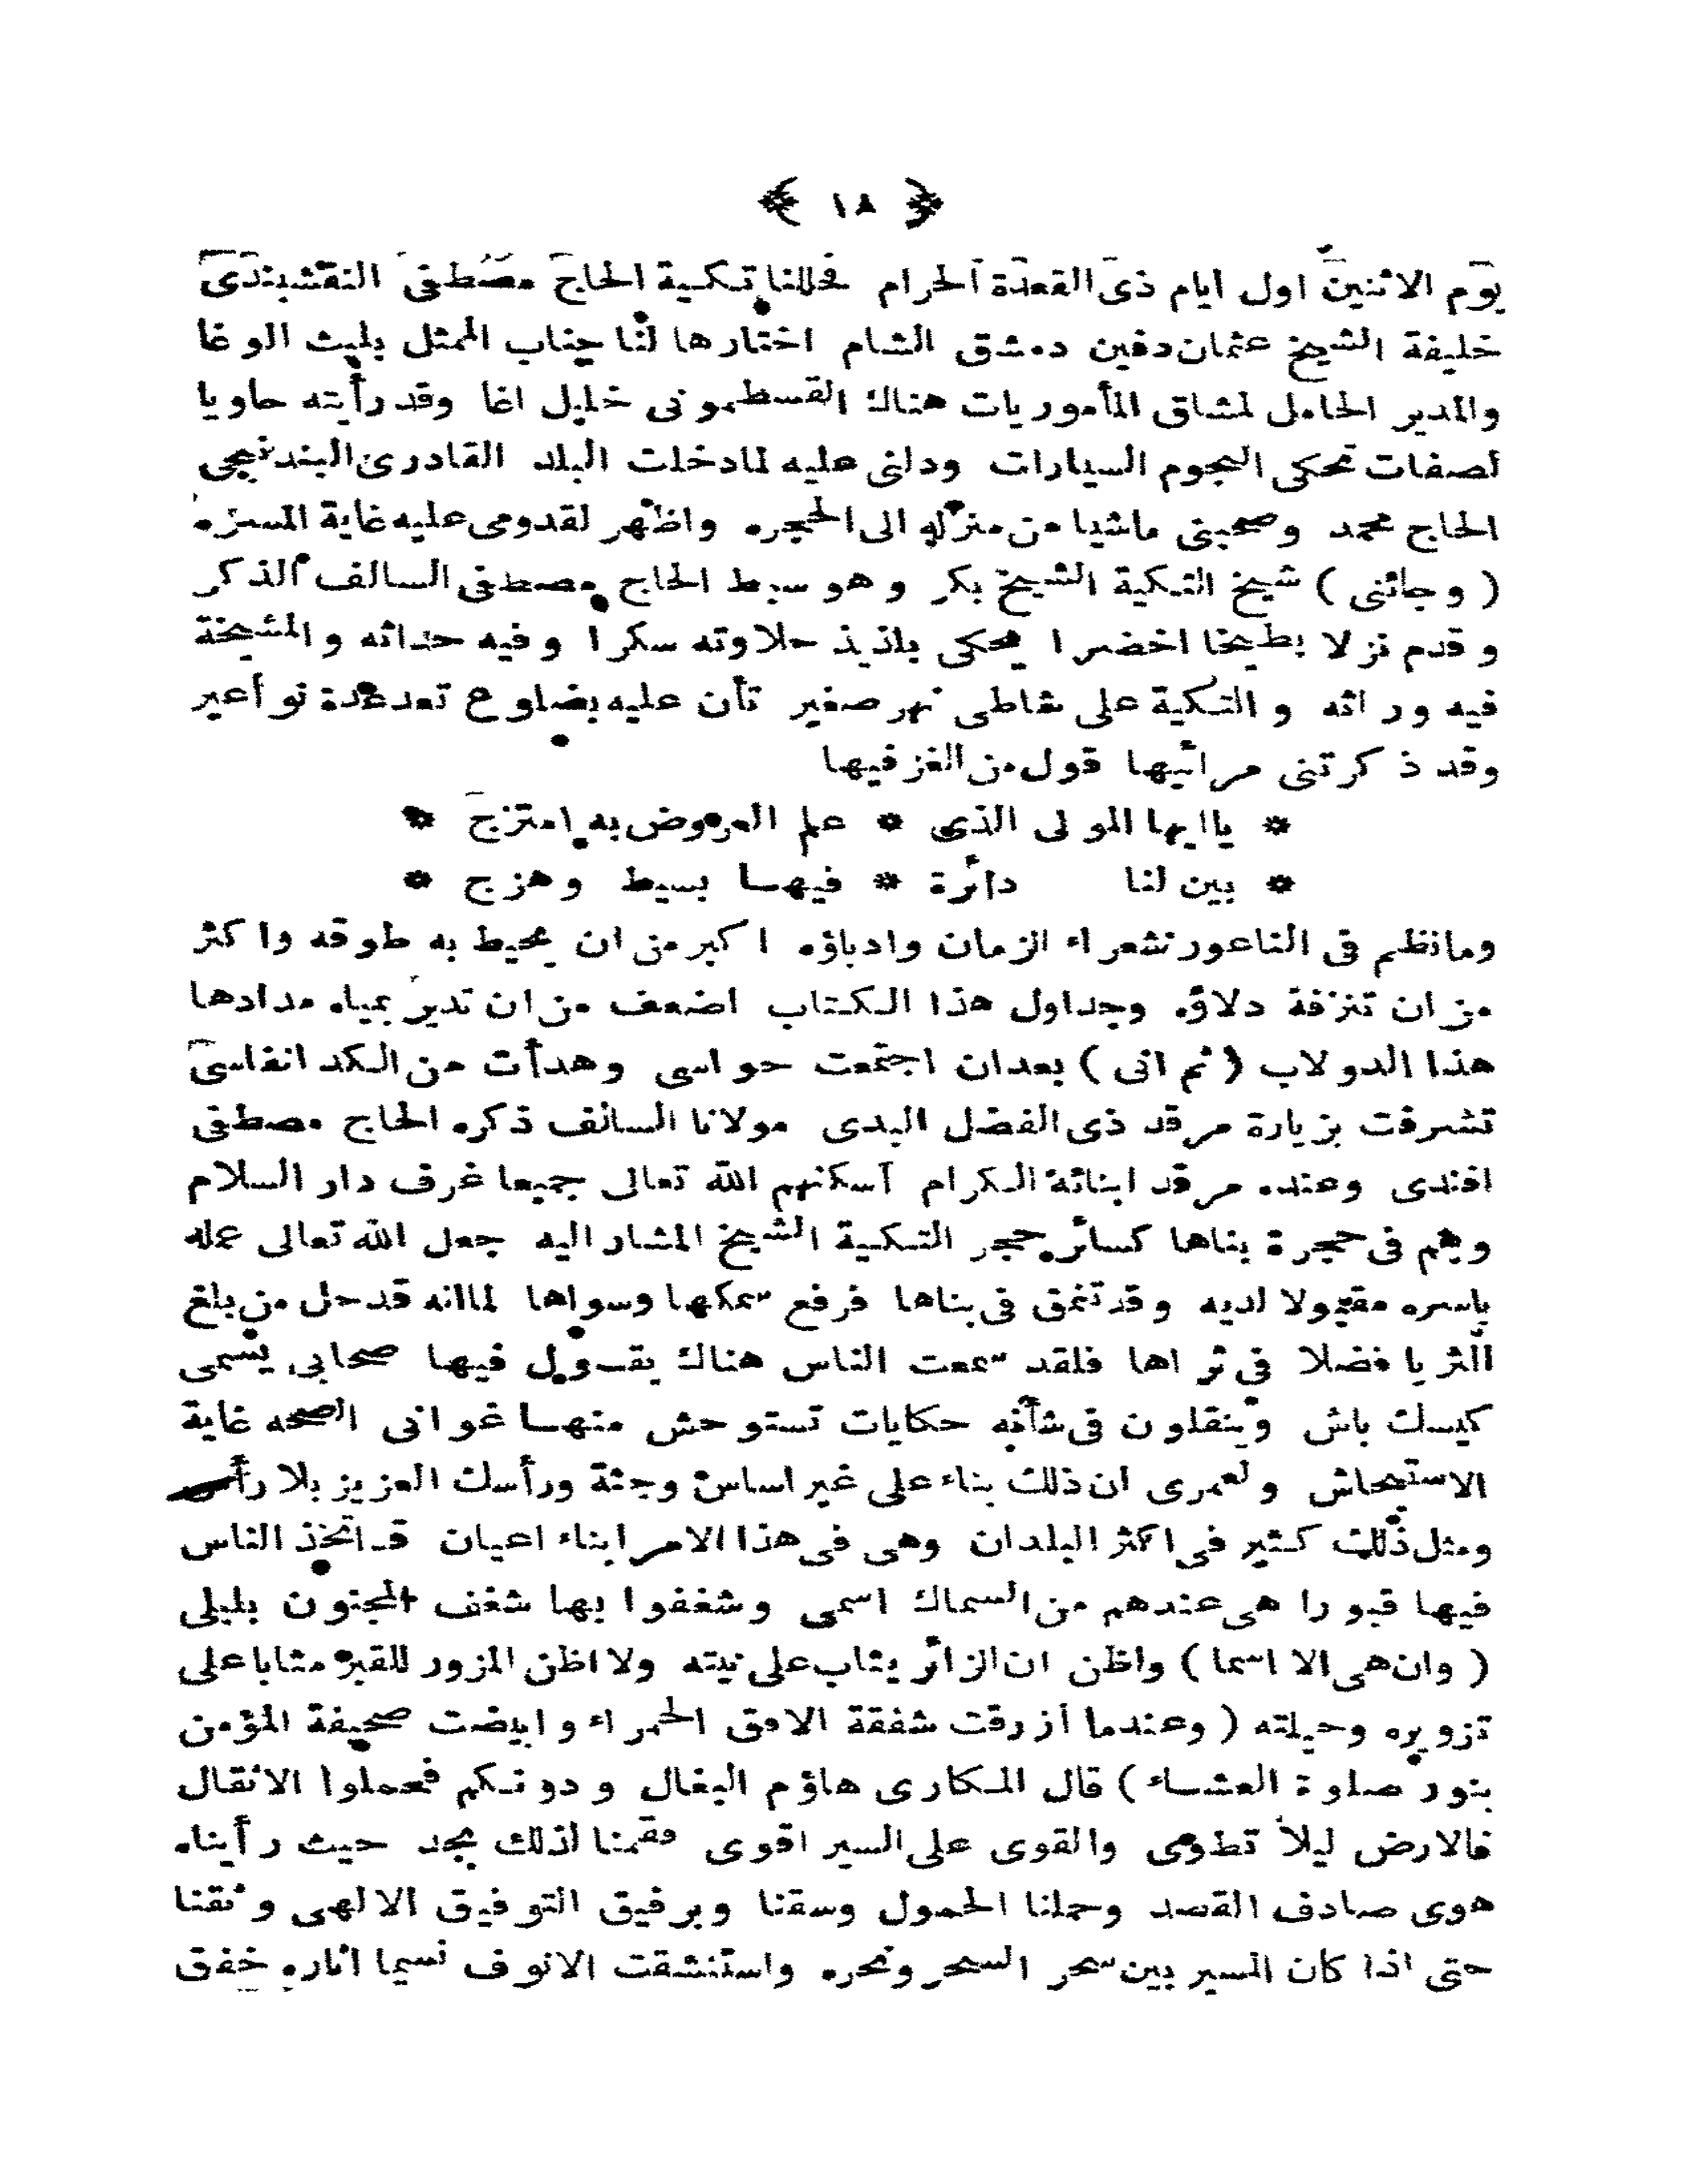 ﴿ ١٨ ﴾
يوم الاثنين اول ايام ذى القعدة الحرام فحللنا تكية الحاج مصطفى النقشبندى
خليفة الشيخ عثمان دفين دمشق الشام اختارها لنا جناب الممثل بليث الوغا
والمدير الحامل لمشاق المأموريات هناك القسطمونى خليل اغا وقد رأيته حاويا
لصفات تحكى النجوم السيارات ودلنى عليه لما دخلت البلد القادرى البندنيجى
الحاج محمد وصحبنى ماشيا من منزله الى الحجره واظهر لقدومى عليه غاية المسره
( وجائنى ) شيخ التكية الشيخ بكر وهو سبط الحاج مصطفى السالف الذكر
وقدم نزلا بطيخا اخضرا يحكى بلذيذ حلاوته سكرا وفيه حداثه والمشيخة
فيه وراثه والتكية على شاطى نهر صغير تأن عليه بضلوع تعدعدة نواعير
وقد ذكرتنى مرائيها قول من الغز فيها
* يا ايها المولى الذى * علم العروض به امتزج *
* بين لنا دائرة * فيها بسيط وهزج *
وما نظم فى الناعور شعراء الزمان وادباؤه اكبر من ان يحيط به طوقه واكثر
من ان تنزفة دلاؤه وجداول هذا الكتاب اضعف من ان تدير بمياه مدادها
هذا الدولاب ( ثم انى ) بعد ان اجتمعت حواسى وهدأت من الكد انفاسى
تشرفت بزيارة مرقد ذى الفضل البدى مولانا السالف ذكره الحاج مصطفى
افندى وعنده مرقد ابنائه الكرام اسكنهم الله تعالى جميعا غرف دار السلام
وهم فى حجرة بناها كسائر حجر التكية الشيخ المشار اليه جعل الله تعالى عمله
باسره مقبولا لديه وقد تنمق فى بناها فرفع سمكها وسواها لما انه قد حل من بلغ
الثريا فضلا فى ثراها فلقد سمعت الناس هناك يقول فيها صحابى يسمى
كيسك باش وينقلون فى شأنه حكايات تستوحش منها غوانى الصحه غاية
الاستيحاش ولعمرى ان ذلك بناء على غير اساس وجثة ورأسك العزيز بلا رأس
ومثل ذلك كثير فى اكثر البلدان وهى فى هذا الامر ابناء اعيان قد اتخذ الناس
فيها قبورا هى عندهم من السماك اسمى وشغفوا بها شغف المجنون بليلى
( وان هى الا اسما ) واظن ان الزائر يثاب على نيته ولا اظن المزور للقبر مثابا على
تزويره وحيلته ( وعندما ازرقت شفقة الافق الحمراء وابيضت صحيفة المؤمن
بنور صلوة العشاء ) قال المكارى هاؤم البغال ودونكم فحملوا الاثقال
فالارض ليلا تطوى والقوى على السير اقوى فقمنا لذلك بجد حيث رأيناه
هوى صادف القصد وحملنا الحمول وسقنا وبرفيق التوفيق الالهى وثقنا
حتى اذا كان المسير بين سحر السحر ونحره واستنشقت الانوف نسيما اثاره خفق